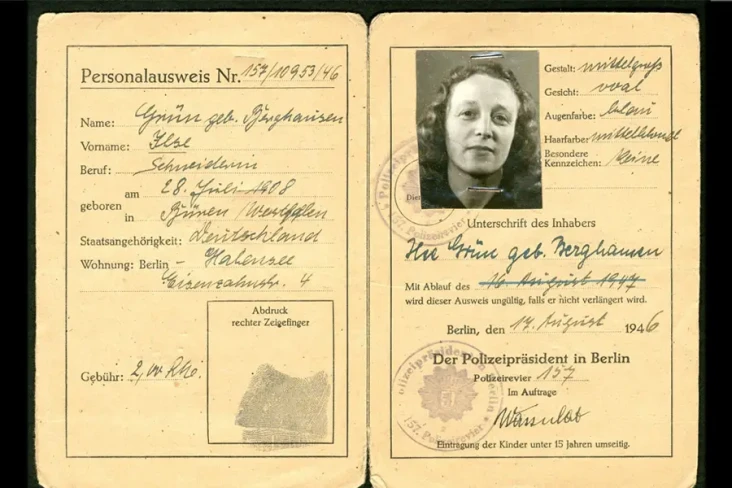 Personalausweis Nr. 157/10953/46
Name: Grün geb. Berghausen
Vorname: Ilse
Beruf: Schneiderin
am 28. Juli 1908
geboren
in Büren Westfalen
Staatsangehörigkeit: Deutschland
Wohnung: Berlin - Halensee
Eisenzahnstr. 4
Abdruck
rechter Zeigefinger
Gebühr: 2,00 RM.
Gestalt: mittelgroß
Gesicht: oval
Augenfarbe: blau
Haarfarbe: mittelblond
Besondere
Kennzeichen: Keine
Die
Polizeipräsident
157. Polizeirevier
Unterschrift des Inhabers
Ilse Grün geb. Berghausen
Mit Ablauf des 16. August 1947
wird dieser Ausweis ungültig, falls er nicht verlängert wird.
Berlin, den 17. August 1946
Der Polizeipräsident in Berlin
Polizeirevier 157
Im Auftrage
Polizeipräsident in Berlin
157. Polizeirevier
Eintragung der Kinder unter 15 Jahren umseitig.